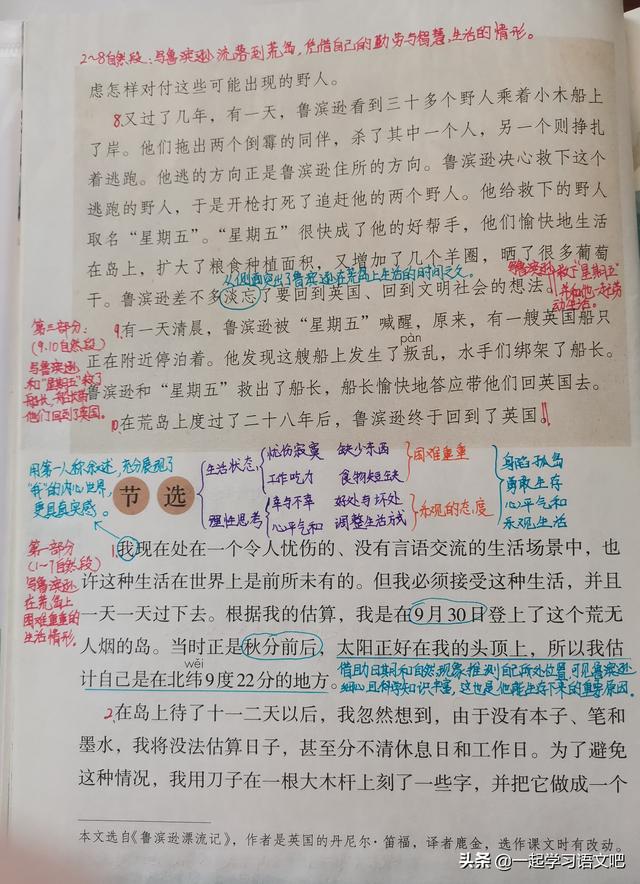 2~8自然段:写鲁滨逊流落到荒岛,凭借自己的勤劳与智慧,生活的情形。
虑怎样对付这些可能出现的野人。
8.又过了几年,有一天,鲁滨逊看到三十多个野人乘着小木船上
了岸。他们拖出两个倒霉的同伴,杀了其中一个人,另一个则挣扎
着逃跑。他逃的方向正是鲁滨逊住所的方向。鲁滨逊决心救下这个
逃跑的野人,于是开枪打死了追赶他的两个野人。他给救下的野人
取名“星期五”。“星期五”很快成了他的好帮手,他们愉快地生活
在岛上,扩大了粮食种植面积,又增加了几个羊圈,晒了很多葡萄
从侧面突出了鲁滨逊在荒岛上生活的时间之久。
干。鲁滨逊差不多淡忘了要回到英国、回到文明社会的想法。
鲁滨逊救“星期五”
第三部分:
(9、10自然段)
写鲁滨逊
和“星期五”救了
他们回到了英国。
9.有一天清晨,鲁滨逊被“星期五”喊醒,原来,有一艘英国船只
pàn
正在附近停泊着。他发现这艘船上发生了叛乱,水手们绑架了船长。
鲁滨逊和“星期五”救出了船长,船长愉快地答应带他们回英国去。
10.在荒岛上度过了二十八年后,鲁滨逊终于回到了英国。
用第一人称叙述,充分展现了
“我”的内心世界,
更具真实感。
节选
生活状态
忧伤寂寞 缺少东西
工作吃力 食物短缺
困难重重
理性思考
幸与不幸 好处与坏处
心平气和 调整生活方式
乐观的态度
身陷孤岛
勇敢生存
心平气和
乐观生活
第一部分
(1~7自然段)
写鲁滨逊
在荒岛上
困难重重的
生活情形。
1.我现在处在一个令人忧伤的、没有言语交流的生活场景中,也
许这种生活在世界上是前所未有的。但我必须接受这种生活,并且
一天一天过下去。根据我的估算,我是在9月30日登上了这个荒无
人烟的岛。当时正是秋分前后,太阳正好在我的头顶上,所以我估
wěi
计自己是在北纬9度22分的地方。
借助日期和自然现象推测自己所处位置,可见鲁滨逊
细心且科学知识丰富,这也是他能生存下来的重要原因。
2.在岛上待了十一二天以后,我忽然想到,由于没有本子、笔和
墨水,我将没法估算日子,甚至分不清休息日和工作日。为了避免
这种情况,我用刀子在一根大木杆上刻了一些字,并把它做成一个
本文选自《鲁滨逊漂流记》,作者是英国的丹尼尔·笛福,译者鹿金,选作课文时有改动。
头条 @一起学习语文吧